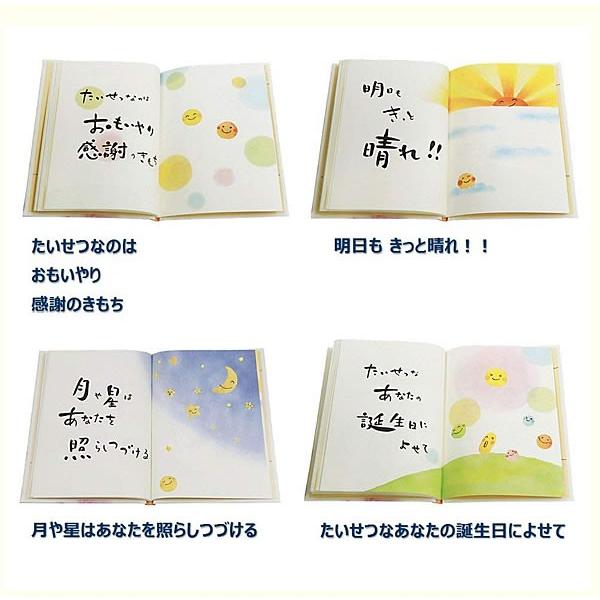 たいせつなのは
おもいやり
感謝のきもち
たいせつなのは
おもいやり
感謝のきもち
明日も
きっと
晴れ!!
明日も きっと晴れ！！
月や星は
あなたを
照らしつづける
月や星はあなたを照らしつづける
たいせつな
あなたの
誕生日に
よせて
たいせつなあなたの誕生日によせて